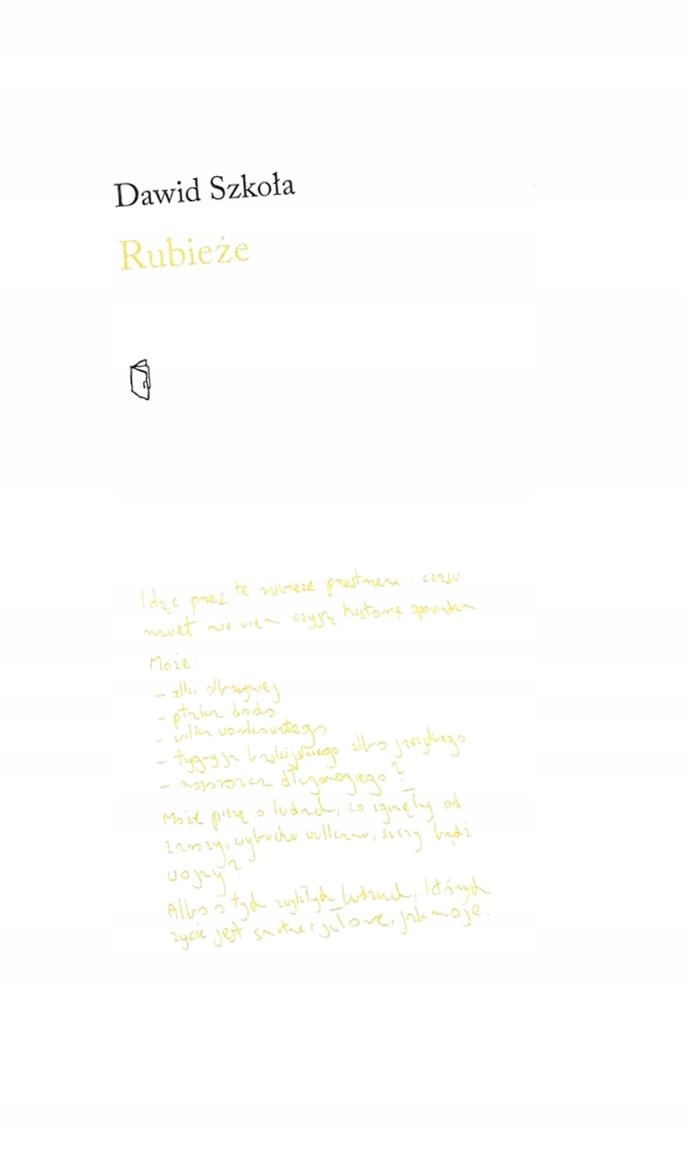 Dawid Szkoła
Rubieże
Idąc przez te rubieże przestrzeni i czasu
nawet nie wiem czyją historię opowiadam
Może:
- alki olbrzymiej
- ptaka dodo
- wilka workowatego
- tygrysa balijskiego albo jawajskiego
- nosorożca długorogiego?
Może piszę o ludach, co zginęły od
zarazy, wybuchu wulkanu, suszy bądź
wojny?
Albo o tych zwykłych ludziach, których
życie jest smutne i jałowe, jak moje.